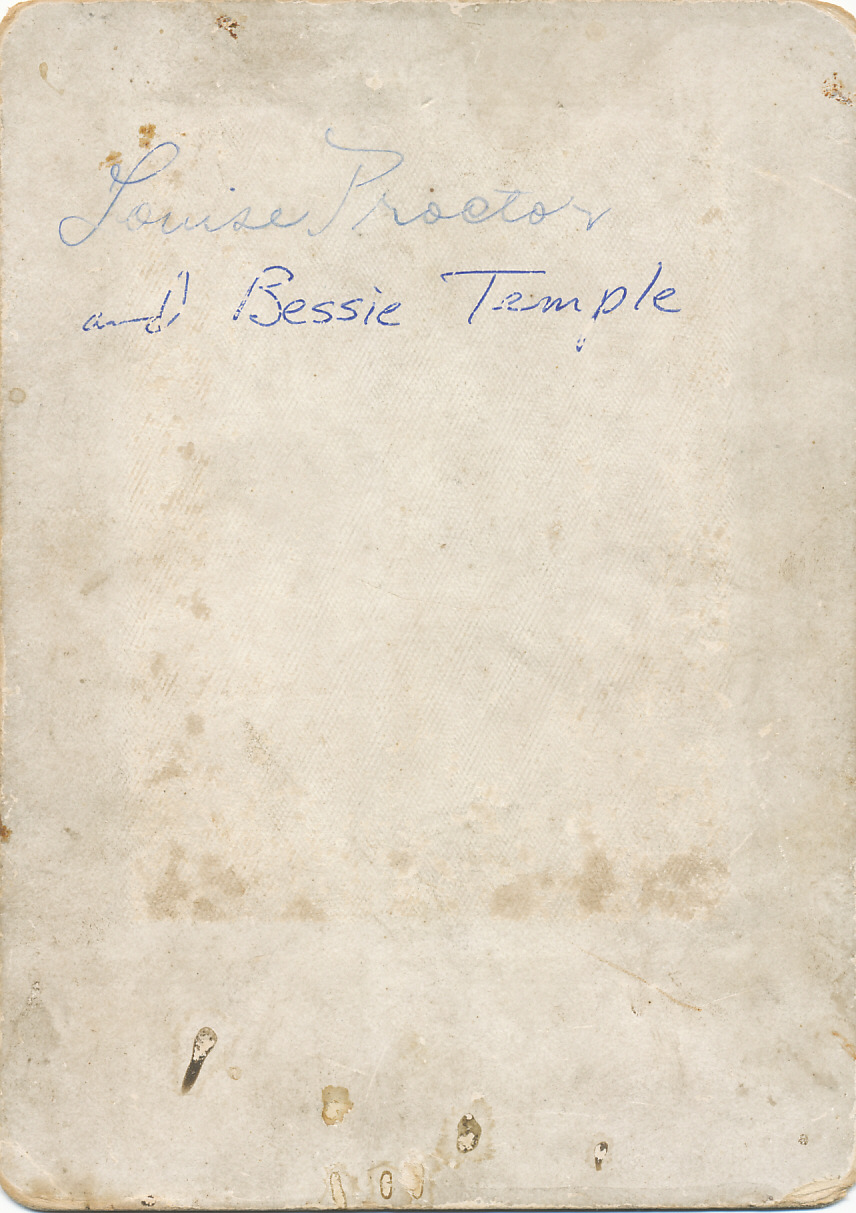 Louise Proctor
and Bessie Temple